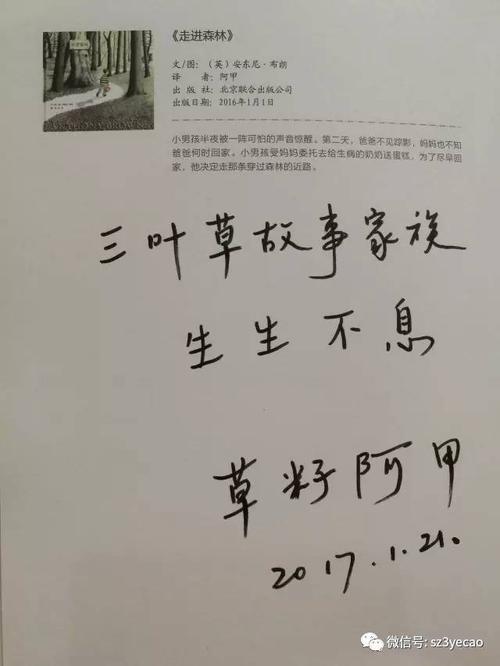 《走进森林》
文/图：（英）安东尼·布朗
译　者：阿甲
出 版 社：北京联合出版公司
出版日期：2016年1月1日
小男孩半夜被一阵可怕的声音惊醒。第二天，爸爸不见踪影，妈妈也不知
爸爸何时回家。小男孩受妈妈委托去给生病的奶奶送蛋糕，为了尽早回
家，他决定走那条穿过森林的近路。
三叶草故事家族
生生不息
草籽阿甲
2017.1.21.
微信号: sz3yecao